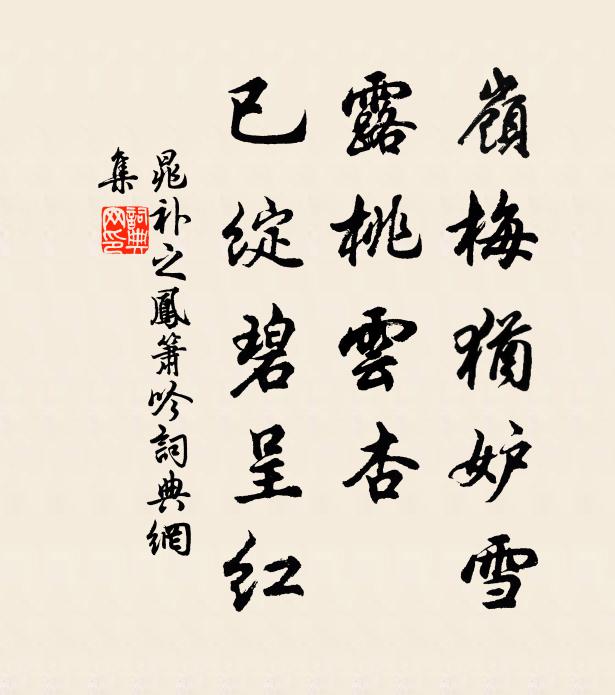 嶺梅猶妒雪
露桃雲杏
已綻碧呈紅
晁补之鳳簫吟詞典網
集
詞典
网印